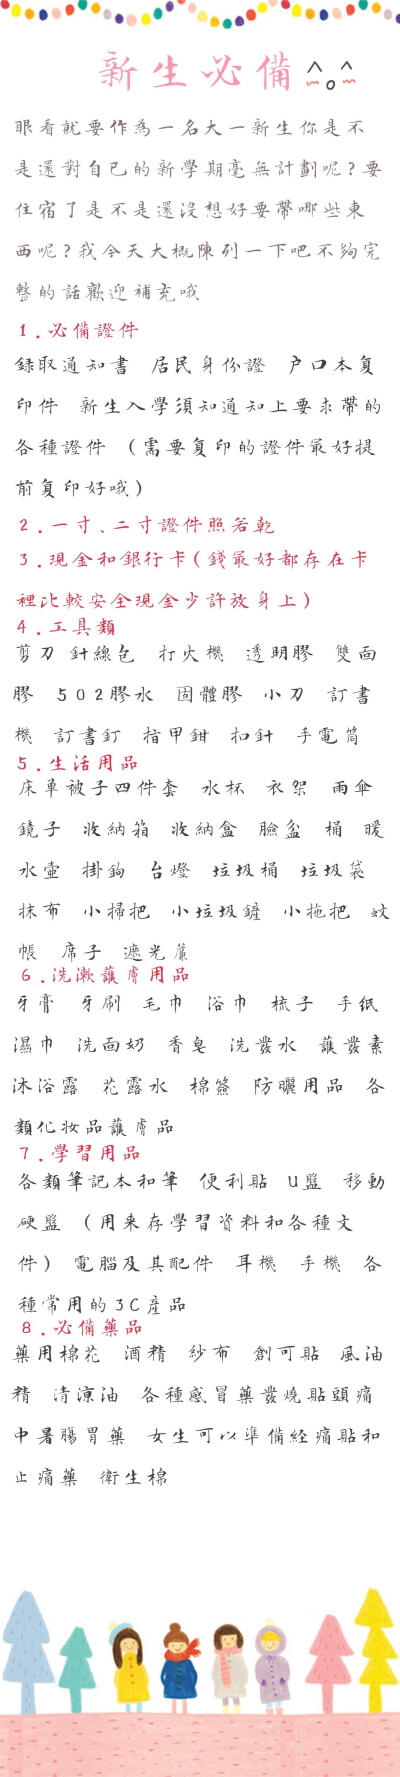 新生必備
眼看就要作為一名大一新生你是不
是還對自已的新學期毫無計劃呢?要
住宿了是不是還沒想好要帶哪些東
西呢?我今天大概陳列一下吧不夠完
整的話歡迎補充哦
1.必備證件
錄取通知書 居民身份證 戶口本复
印件 新生入學須知通知上要求帶的
各種證件 (需要复印的證件最好提
前复印好哦)
2.一寸、二寸證件照若乾
3.現金和銀行卡(錢最好都存在卡
裡比較安全現金少許放身上)
4.工具類
剪刀 針線包 打火機 透明膠 雙面
膠 502膠水 固體膠 小刀 訂書
機 訂書釘 指甲鉗 扣針 手電筒
5.生活用品
床單被子四件套 水杯 衣架 雨傘
鏡子 收納箱 收納盒 臉盆 桶 暖
水壺 掛鉤 台燈 垃圾桶 垃圾袋
抹布 小掃把 小垃圾鏟 小拖把 蚊
帳 席子 遮光簾
6.洗漱護膚用品
牙膏 牙刷 毛巾 浴巾 梳子 手紙
濕巾 洗面奶 香皂 洗發水 護發素
沐浴露 花露水 棉簽 防曬用品 各
類化妝品護膚品
7.學習用品
各類筆記本和筆 便利貼 U盤 移動
硬盤 (用來存學習資料和各種文
件) 電腦及其配件 耳機 手機 各
種常用的3C產品
8.必備藥品
藥用棉花 酒精 紗布 創可貼 風油
精 清涼油 各種感冒藥發燒貼頭痛
中暑腸胃藥 女生可以準備經痛貼和
止痛藥 衛生棉